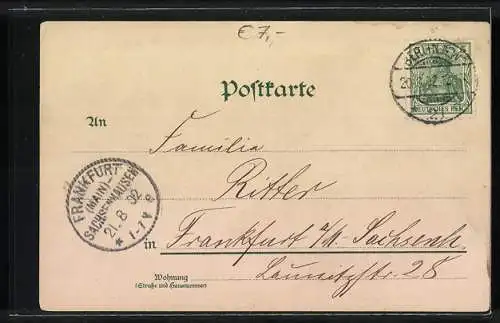 €7,-
Postkarte
An
Familie
Ritter
in Frankfurt a/M. Sachsenh.
Launitzstr. 28
Wohnung
(Straße und Hausnummer)
FRANKFURT
(MAIN)-
SACHSENHAUSEN
21.8 02
* 1-7 V
BERLIN
DEUTSCHES REICH